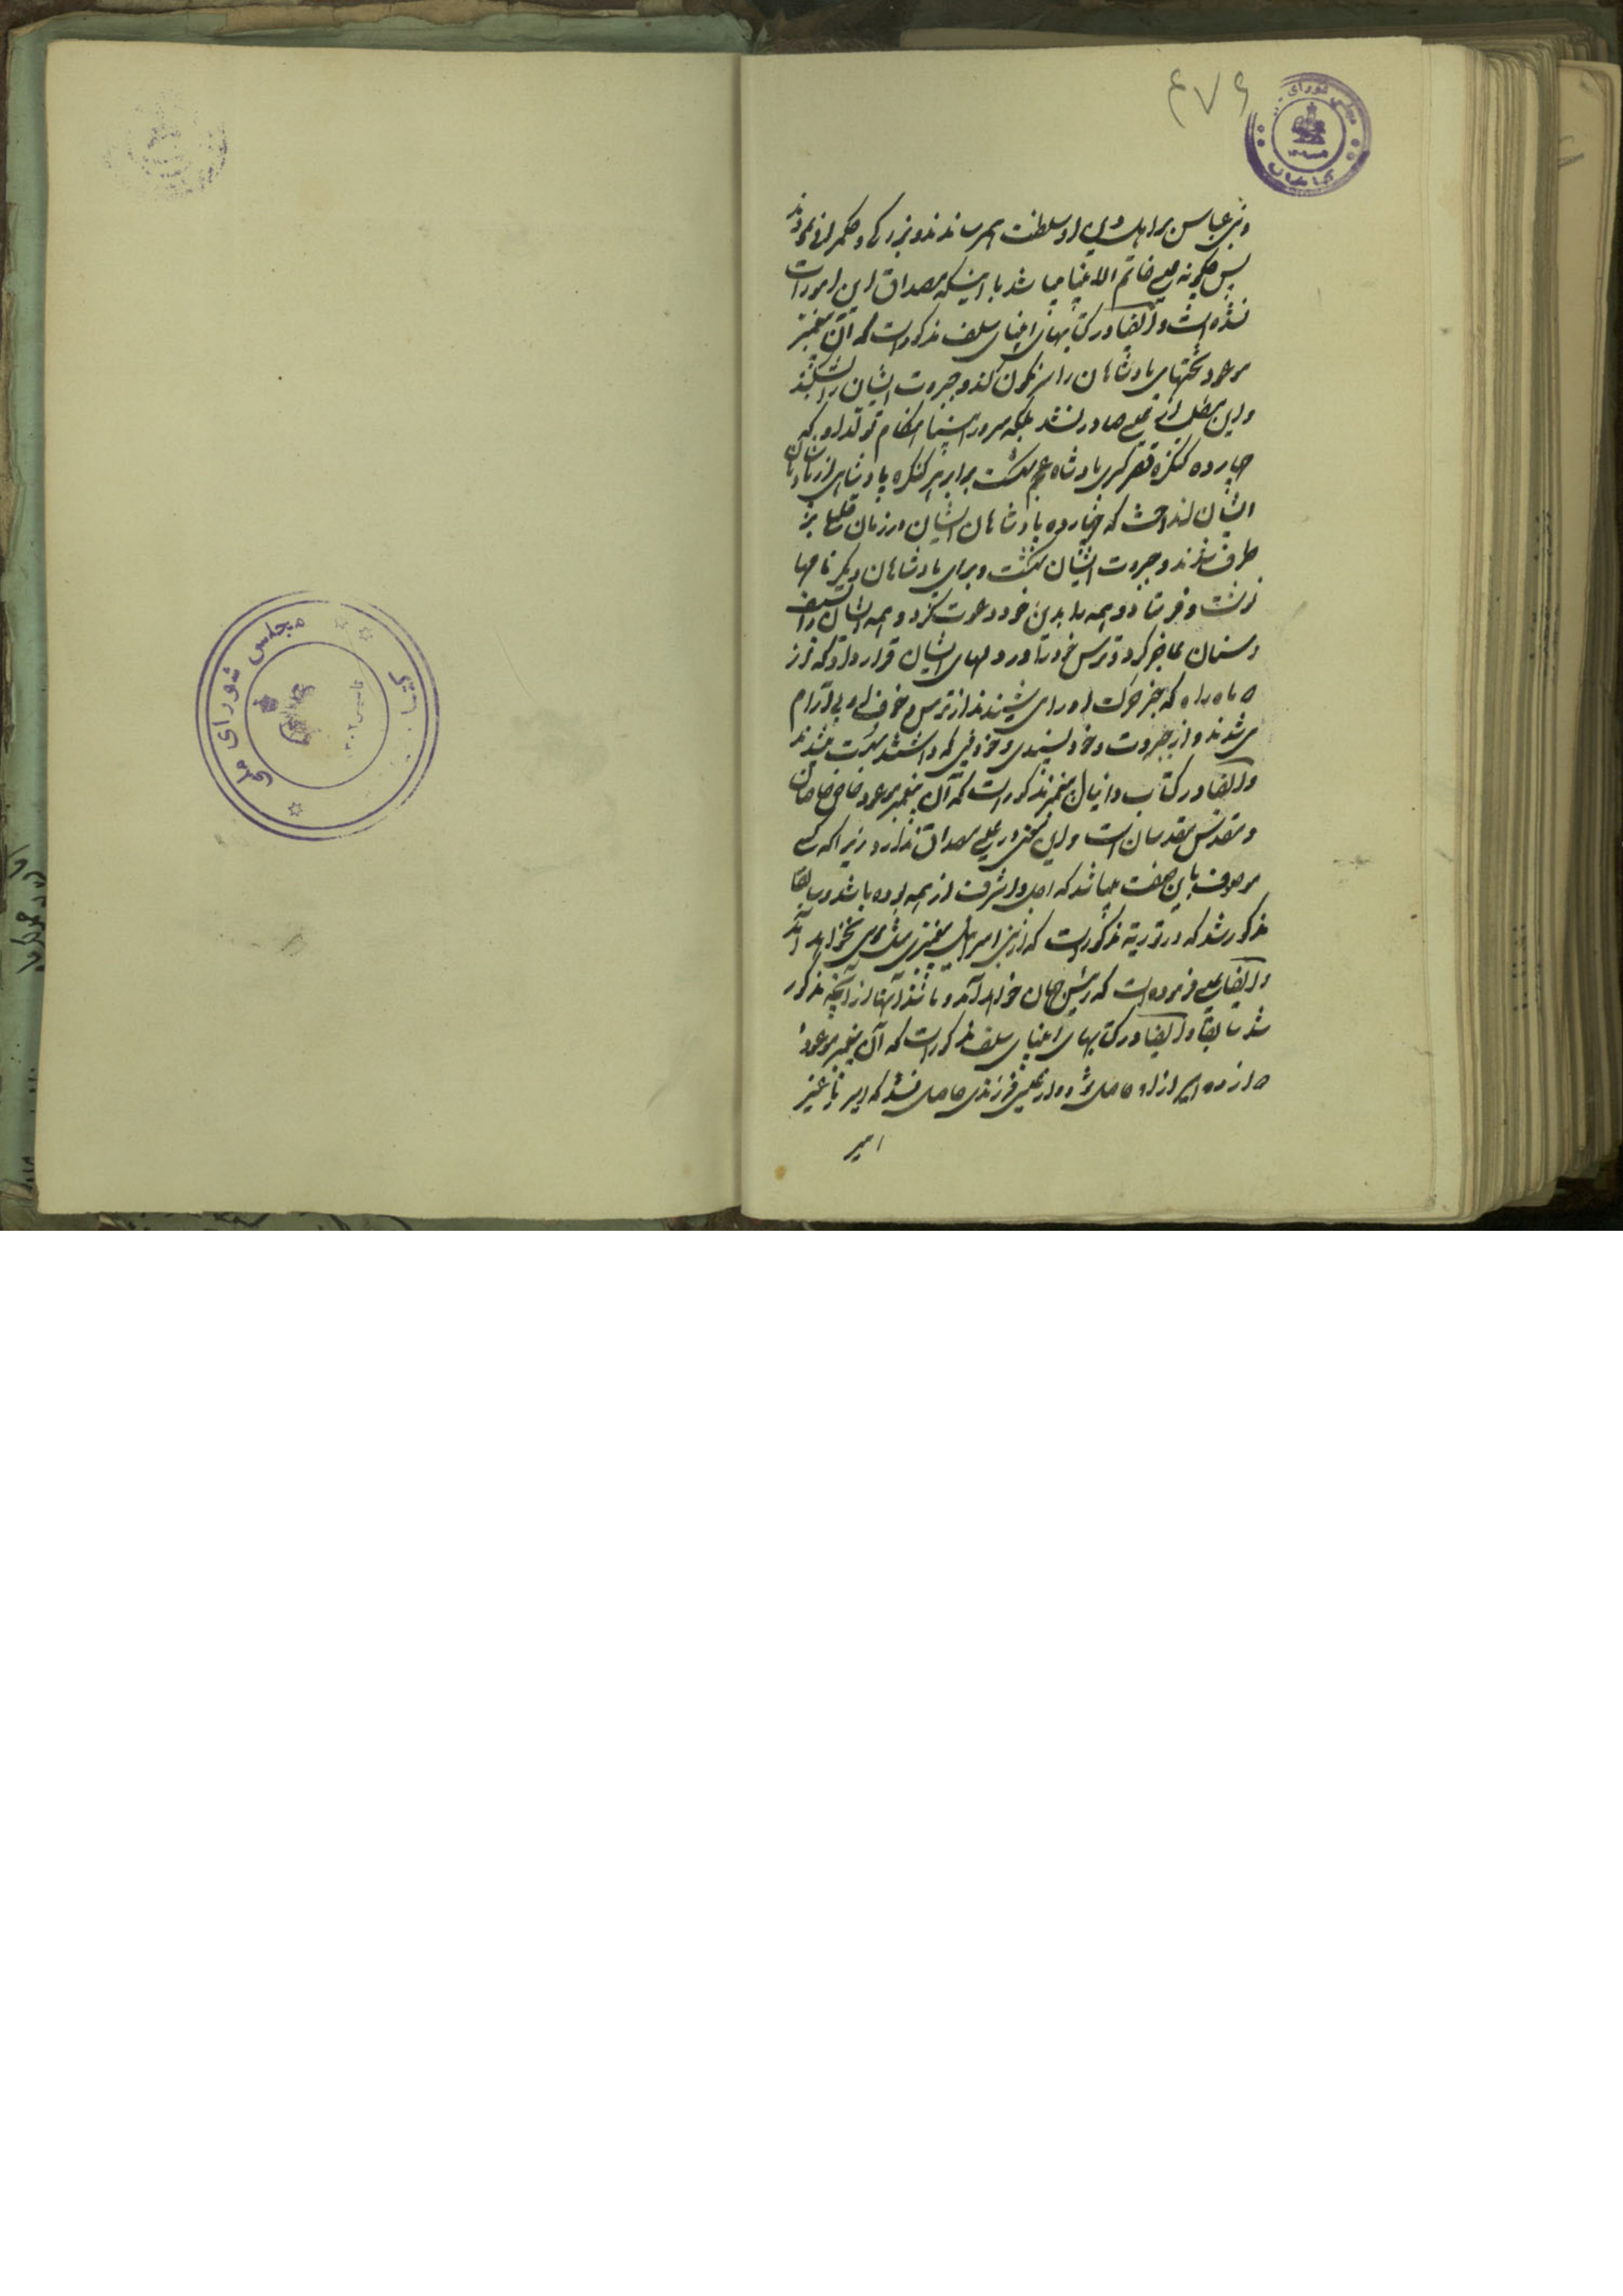 ۴۷۶
مجلس شورای
کتابخانه
و بنی عباس بر اهل دین او سلطنت بهم رساندند و بزرگی و حکمرانی نمودند
پس چگونه عیسی خاتم الانبیا میباشد با اینکه مصداق این امورات
نشده است و ایضا در کتابهای انبیای سلف مذکور است که آن پیغمبر
موعود تختهای پادشاهان را سرنگون کند و جبروت ایشان را بشکند
و این مطلب از عیسی صادر نشد بلکه سرور انبیا هنگام تولد او که
چهارده کنگره قصر کسری پادشاه عجم شکست برابر هر کنگره پادشاهی از
ایشان انداخت که چهارده پادشاهان ایشان در زمان
طرف شدند و جبروت ایشان شکست و برای پادشاهان دیگر نامها
نوشت و فرستاد و همه را بدین خود دعوت کرد و همه ایشان را بسیف
و سنان عاجز کرد و ترس خود را در دلهای ایشان قرار داد که از
ماه راه که خبر حرکت او را می شنیدند از ترس و خوف او بی آرام
می شدند و از جبروت و خود پسندی و خود بینی که داشتند
و ایضا در کتاب دانیال پیغمبر مذکور است که آن پیغمبر موعود خاص خاصان
و مقدس مقدسان است و این معنی در عیسی مصداق ندارد زیرا که کسی
موصوف باین صفت میباشد که اصل و اشرف از همه بوده باشد و سابقا
مذکور شد که در توریة مذکور است که از بنی اسرائیل پیغمبری مثل موسی نخواهد آمد
و ایضا عیسی فرموده است که رئیس جهان خواهد آمد و مانند آنها از آنچه مذکور
شد سابقا و ایضا در کتابهای انبیای سلف مذکور است که آن پیغمبر موعود
دوازده امیر از او حاصل شود و از عیسی فرزندی حاصل نشد که امیر یا غیر
امیر
مجلس شورای ملی